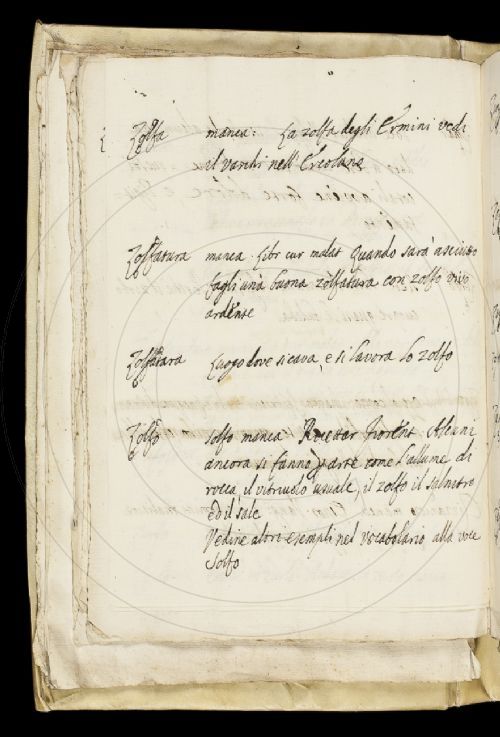 Zolfa manca: La zolfa degli Ermini vedi
il Varchi nell' Ercolano
Zolfatura manca. libr cur malat Quando sarà asciutto
fagli una buona zolfatura con zolfo vivo
ardente
Zolfatara Luogo dove si cava, e si lavora lo zolfo
Zolfo solfo manca Ricettar Fiorent. Alcuni
ancora si fanno p arte come l'allume di
rocca, il vitriuolo usuale, il zolfo il salnitro
ed il sale
Vedine altri esempli nel vocabolario alla voce
Solfo